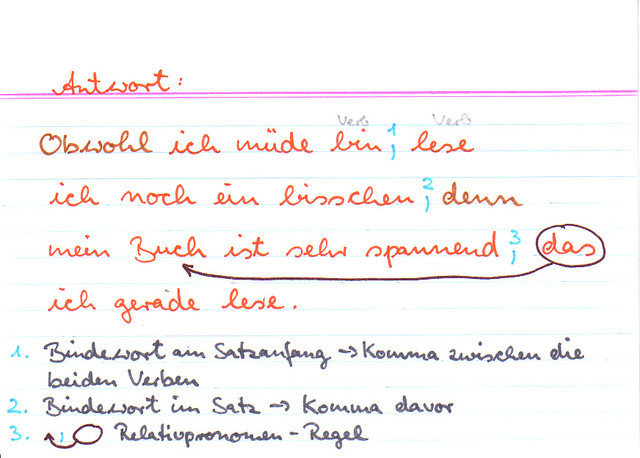 Antwort:
Verb Verb
Obwohl ich müde bin,¹ lese
ich noch ein bisschen,² denn
mein Buch ist sehr spannend,³ das
ich gerade lese.
1. Bindewort am Satzanfang → Komma zwischen die
beiden Verben
2. Bindewort im Satz → Komma davor
3. , Relativpronomen - Regel